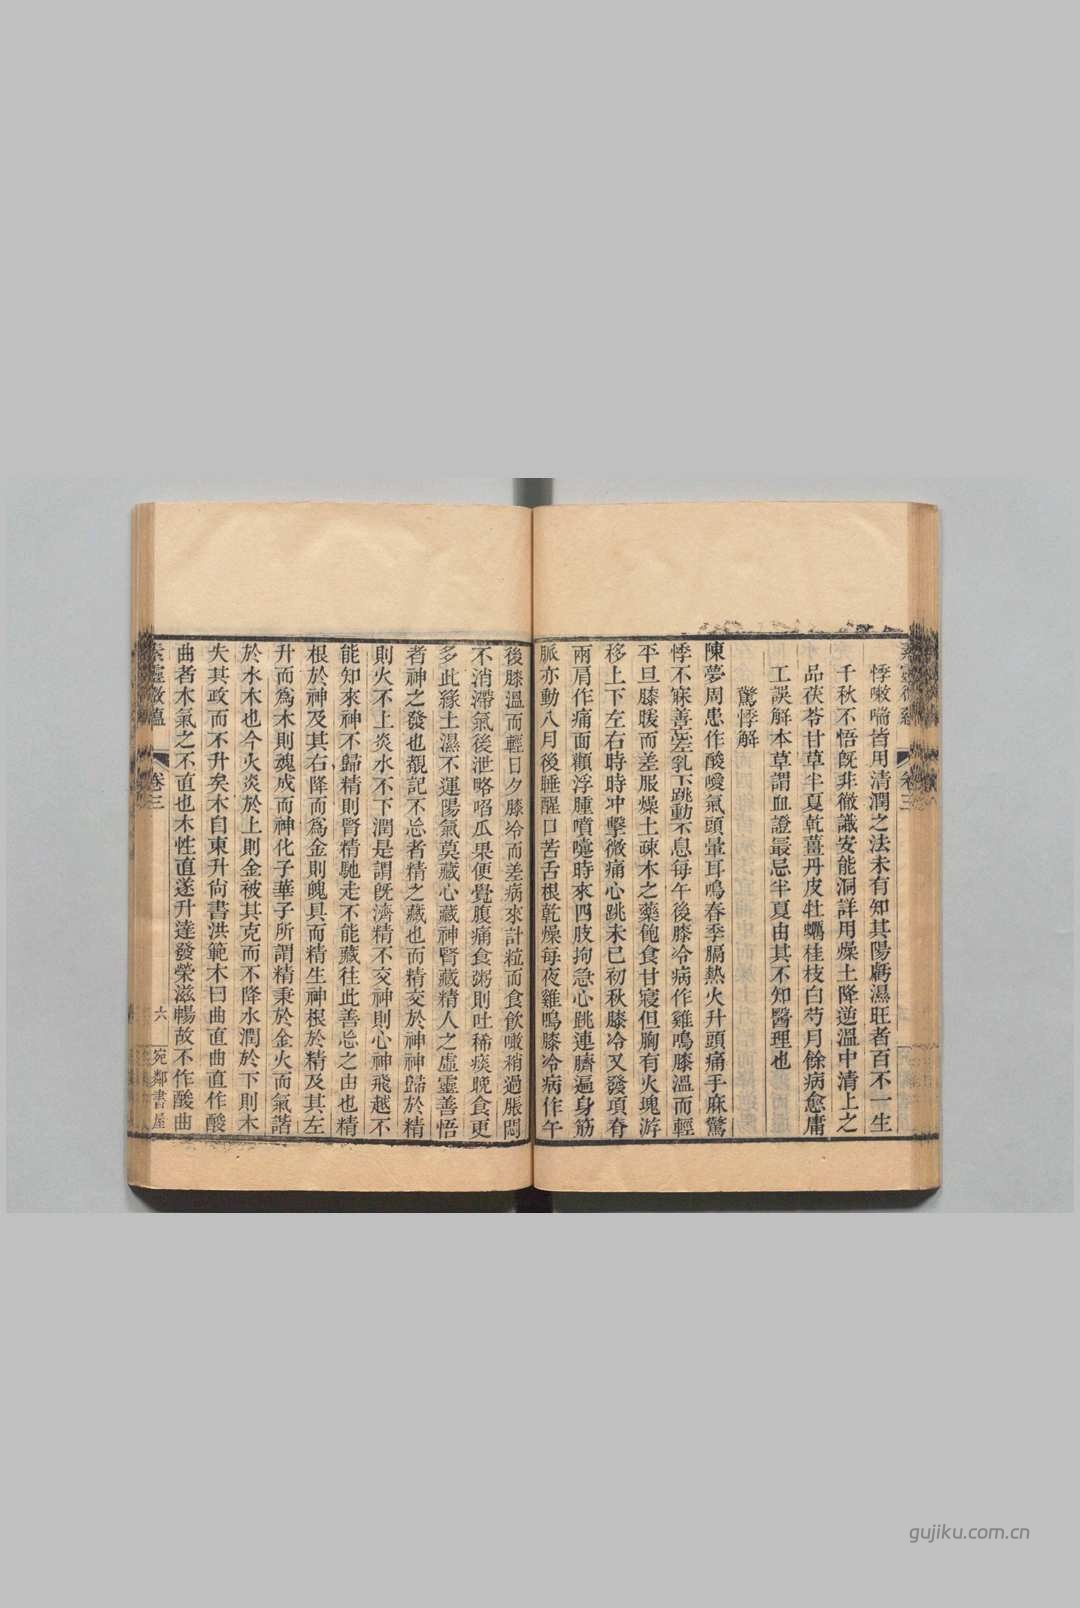 悸嗽喘皆用清潤之法未有知其陽虧濕旺者百不一生
千秋不悟旣非徹識安能洞詳用燥土降逆溫中清上之
品茯苓甘草半夏乾薑丹皮牡蠣桂枝白芍月餘病愈庸
工誤解本草謂血證最忌半夏由其不知醫理也
驚悸解
陳夢周患作酸噯氣頭暈耳鳴春季膈熱火升頭痛手麻驚
悸不寐善忘左乳下跳動不息每午後膝冷病作雞鳴膝溫而輕
平旦膝暖而差服燥土疎木之藥飽食甘寢但胸有火塊游
移上下左右時時冲擊微痛心跳未已初秋膝冷又發項脊
兩肩作痛面顴浮腫噴嚏時來四肢拘急心跳連臍遍身筋
脈亦動八月後睡醒口苦舌根乾燥每夜雞鳴膝冷病作午
後膝溫而輕日夕膝冷而差病來計粒而食飲噉稍過脹悶
不消滯氣後泄略啗瓜果便覺腹痛食粥則吐稀痰晚食更
多此緣土濕不運陽氣莫藏心藏神腎藏精人之虛靈善悟
者神之發也覩記不忘者精之藏也而精交於神神歸於精
則火不上炎水不下潤是謂旣濟精不交神則心神飛越不
能知來神不歸精則腎精馳走不能藏往此善忘之由也精
根於神及其右降而爲金則魄具而精生神根於精及其左
升而爲木則魂成而神化子華子所謂精秉於金火而氣諧
於水木也今火炎於上則金被其克而不降水潤於下則木
失其政而不升矣木自東升尙書洪範木曰曲直曲直作酸
曲者木氣之不直也木性直遂升達發榮滋暢故不作酸曲
素靈微蘊 卷三 六 宛鄰書屋
gujiku.com.cn